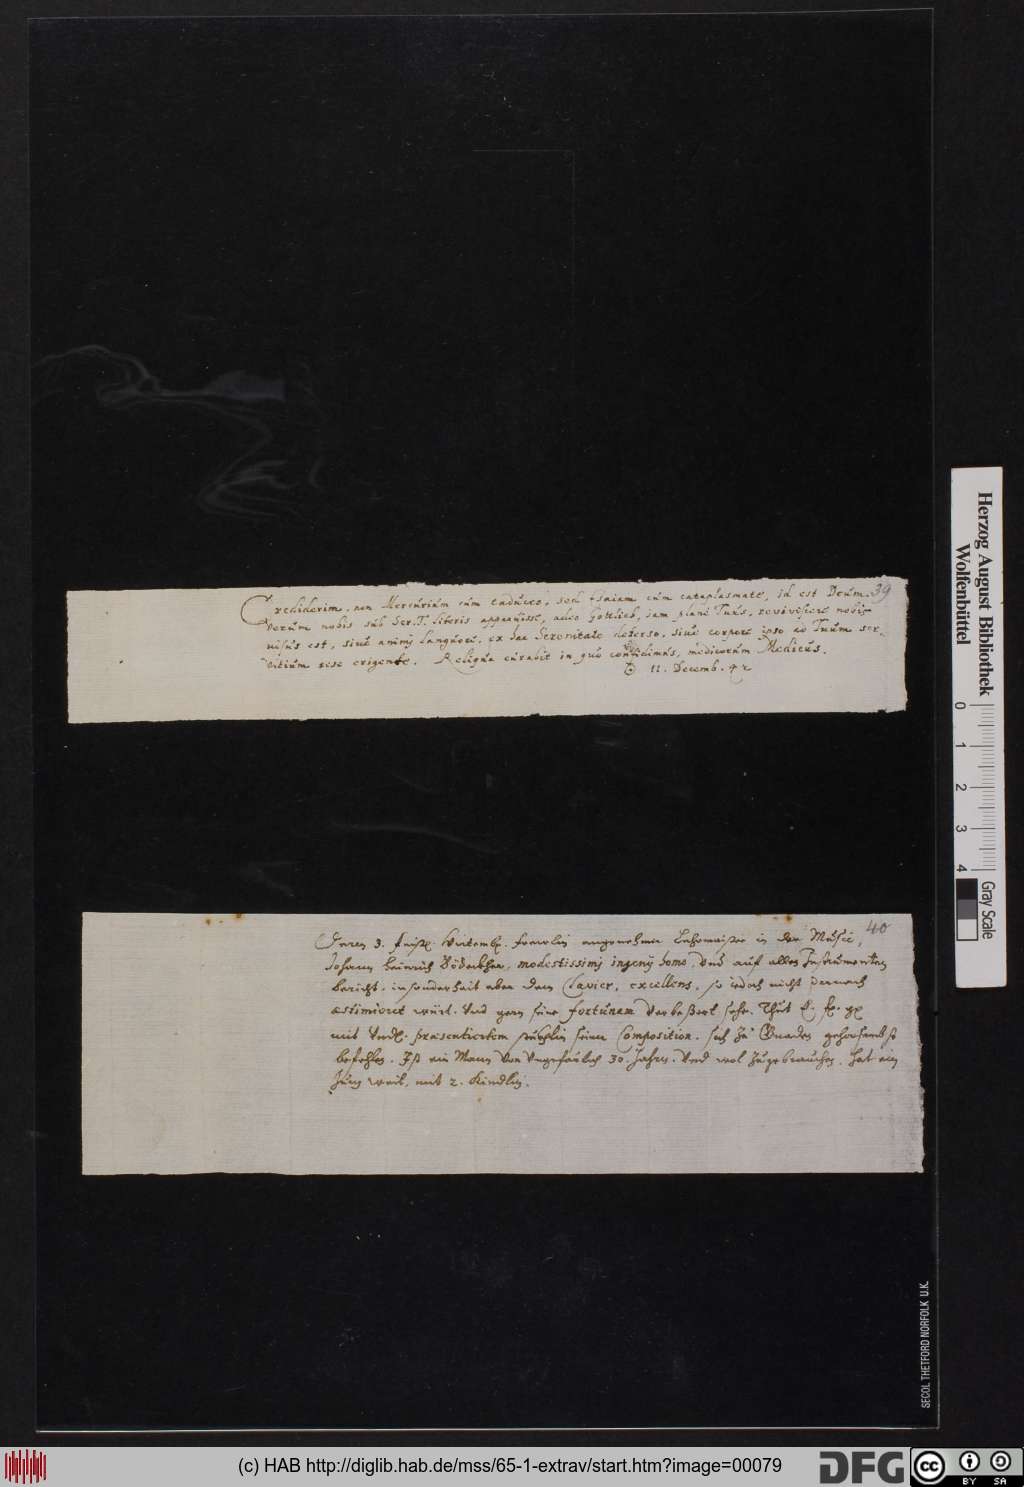 39
Crediderim, non Mercurium cum caduceo, sed Esaiam cum cataplasmate, id est Deum.
verum nobis sub Ser. T. literis apparuisse, adeo Gottlieb, jam planè Tuus, reviviscere nobis
visus est, sive animj languore, ex hac Serenitate deterso, sive corpore ipso ad Tuum ser-
vitium sese erigente. Reliqua curabit in quo confidimus, medicorum Medicus.
♄ 11. Decemb. 42
40
3. in der Music,
Johann Heinrich modestissimj ingenij homo, Und auf allen Instrumenten
bericht, insonderheit aber dem Clavier, excellens, so iedoch nicht darnach
æstimieret würt. Und gern seine fortunam verbeßert sehe. Thut E. F. G.
mit Und. præsentiertem seine Composition. sich zu Gnaden gehorsambst
befehlen. Ist ein Mann Von Ungefährlich 30. Jahren. Und wol Zugebrauchen. hat ein
Jung weib, mit 2. Kindlin.
Herzog August Bibliothek
Wolfenbüttel
0 1 2 3 4
Gray Scale
SECOL THETFORD NORFOLK U.K.
(c) HAB http://diglib.hab.de/mss/65-1-extrav/start.htm?image=00079
DFG
cc BY SA